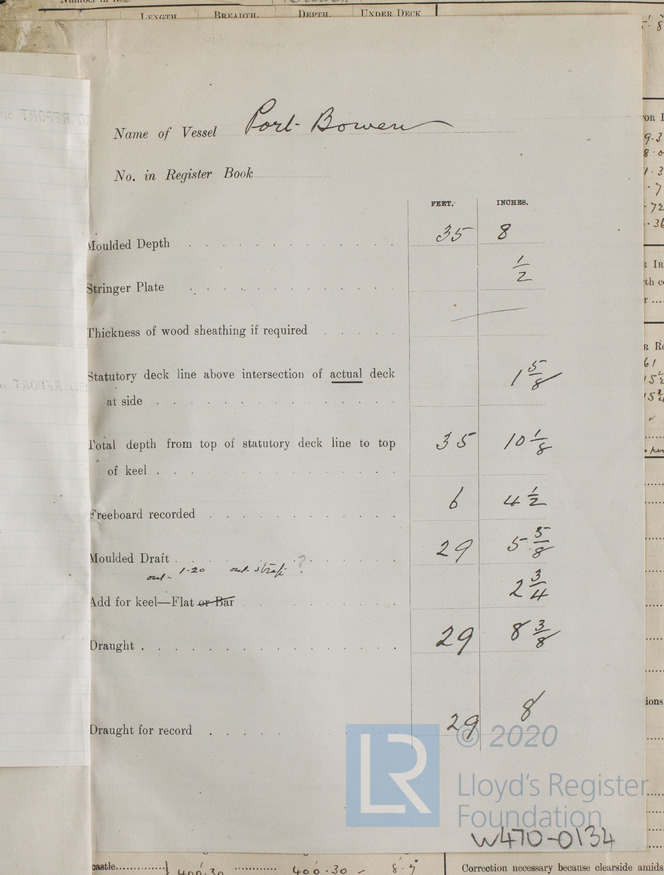 LENGTH BREADTH. DEPTH. UNDER DECK
Name of Vessel Port Bowen
No. in Register Book
FEET. INCHES.
Moulded Depth 35 8
Stringer Plate 1/2
Thickness of wood sheathing if required —
Statutory deck line above intersection of actual deck
at side 1 5/8
Total depth from top of statutory deck line to top 35 10 1/8
of keel
Freeboard recorded 6 4 1/2
Moulded Draft 29 5 5/8
1.20 ?
Add for keel—Flat or Bar 2 3/4
Draught 29 8 3/8
Draught for record 29 8
© 2020
LR Lloyd's Register
Foundation
W470-0134
castle 400.30 400.30 8.9
Correction necessary because clearside amids